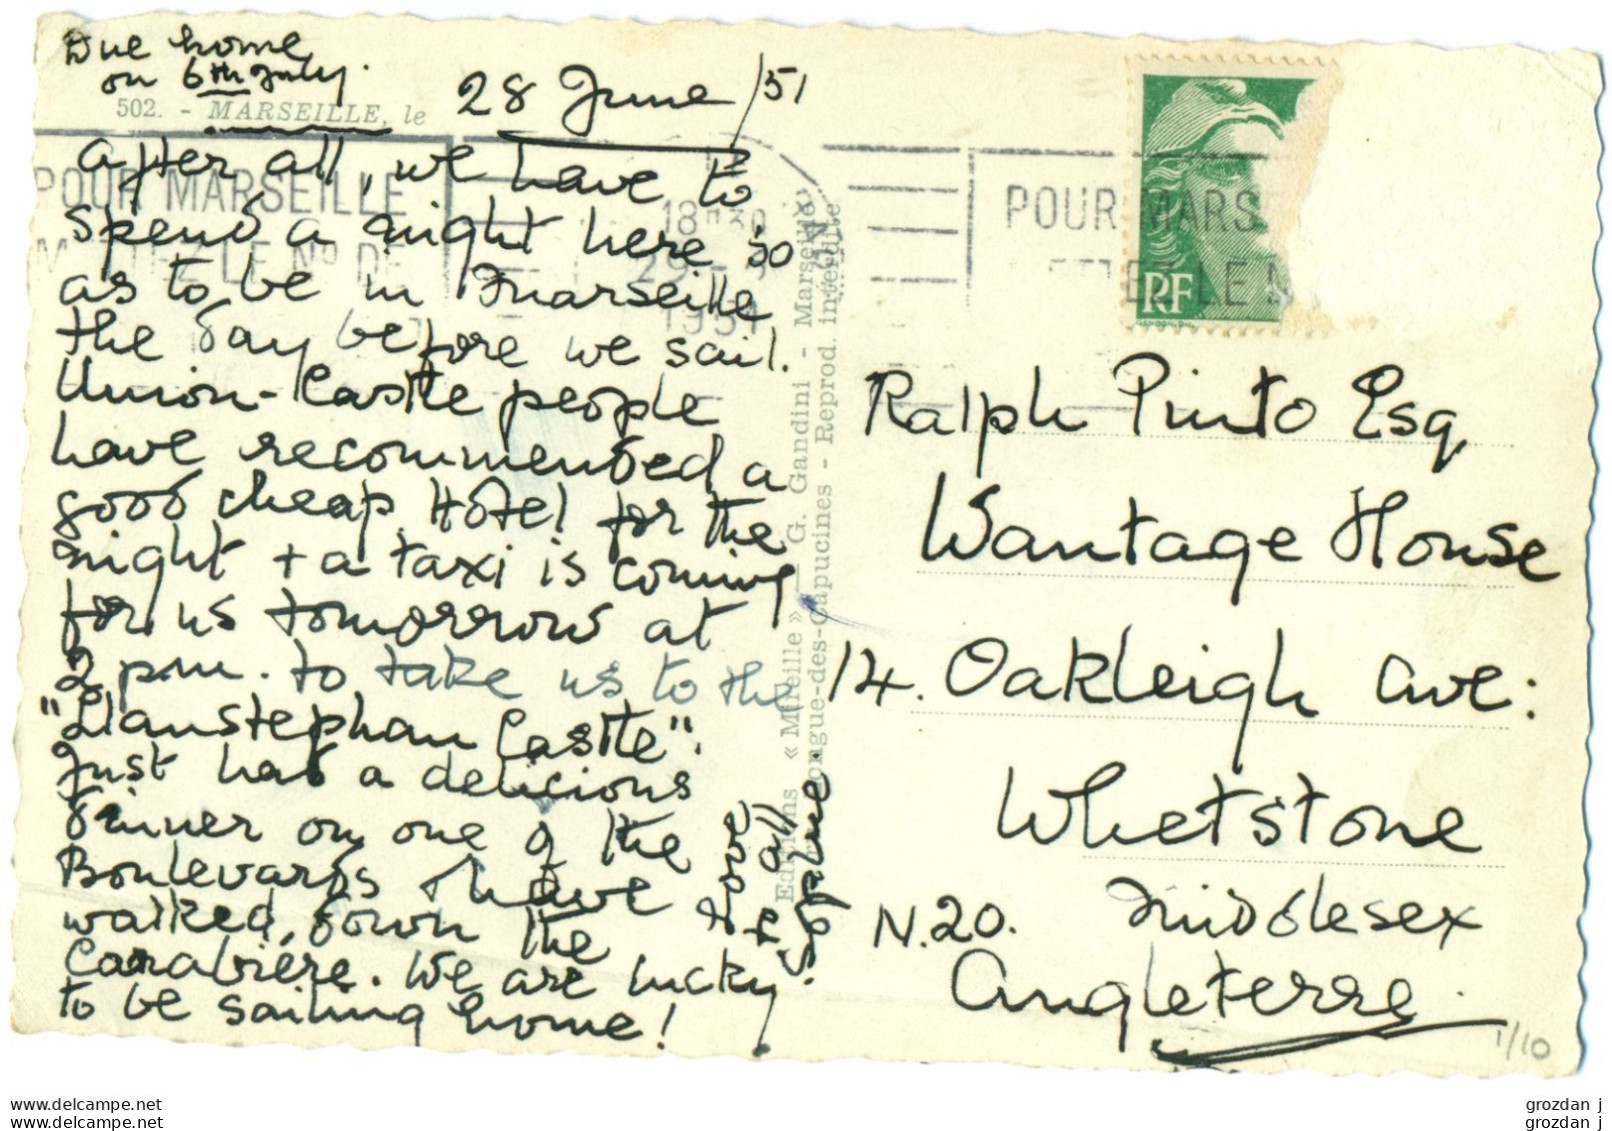 Due home
on 6th July.
502. - MARSEILLE, le 28 June /51
After all, we have to
spend a night here so
as to be in Marseille
the day before we sail.
Union-Castle people
have recommended a
good cheap Hotel for the
night + a taxi is coming
for us tomorrow at
2 pm. to take us to the
"Llanstephan Castle".
Just had a delicious
dinner on one of the
Boulevards + have
walked down the
Canabière. We are lucky
to be sailing home!
Love
to all
POUR MARSEILLE
LE No DE
18H30
29 - 
1951
Editions « Mireille » — G. Gandini - Marseille
ongue-des-Capucines - Reprod. interdite
POUR MARSE
LE N
RF
Ralph Pinto Esq
Wantage House
14. Oakleigh Ave:
Whetstone
N.20. Middlesex
Angleterre.
1/10
grozdan j
grozdan j
www.delcampe.net
www.delcampe.net